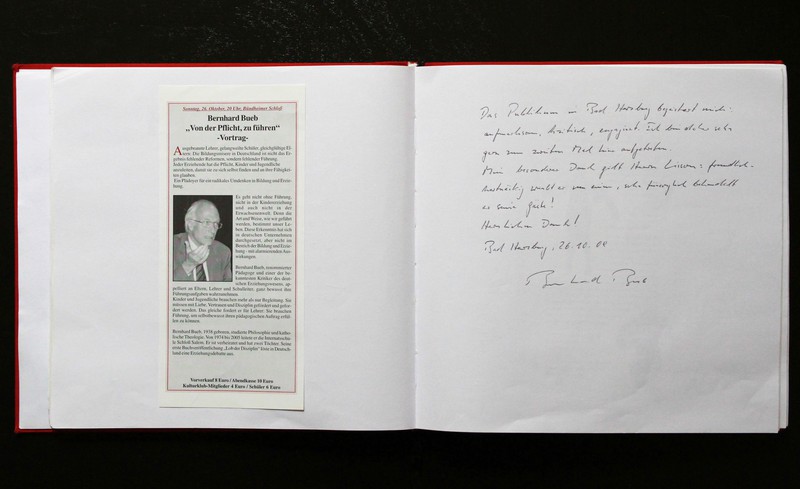 Sonntag, 26. Oktober, 20 Uhr, Bündheimer Schloß
Bernhard Bueb
„Von der Pflicht, zu führen“
-Vortrag-
Ausgebrannte Lehrer, gelangweilte Schüler, gleichgültige El-
tern. Die Bildungsmisere in Deutschland ist nicht das Er-
gebnis fehlender Reformen, sondern fehlender Führung.
Jeder Erziehende hat die Pflicht, Kinder und Jugendliche
anzuleiten, damit sie zu sich selbst finden und an ihre Fähigkei-
ten glauben.
Ein Plädoyer für ein radikales Umdenken in Bildung und Erzie-
hung.
Es geht nicht ohne Führung,
nicht in der Kindererziehung
und auch nicht in der
Erwachsenenwelt. Denn die
Art und Weise, wie wir geführt
werden, bestimmt unser Le-
ben. Diese Erkenntnis hat sich
in deutschen Unternehmen
durchgesetzt, aber nicht im
Bereich der Bildung und Erzie-
hung - mit alarmierenden Aus-
wirkungen.
Bernhard Bueb, renommierter
Pädagoge und einer der be-
kanntesten Kritiker des deut-
schen Erziehungswesens, ap-
pelliert an Eltern, Lehrer und Schulleiter, ganz bewusst ihre
Führungsaufgaben wahrzunehmen.
Kinder und Jugendliche brauchen mehr als nur Begleitung. Sie
müssen mit Liebe, Vertrauen und Disziplin gefördert und gefor-
dert werden. Das gleiche fordert er für Lehrer. Sie brauchen
Führung, um selbstbewusst ihren pädagogischen Auftrag erfül-
len zu können.
Bernhard Bueb, 1938 geboren, studierte Philosophie und katho-
lische Theologie. Von 1974 bis 2005 leitete er die Internatsschu-
le Schloß Salem. Er ist verheiratet und hat zwei Töchter. Seine
erste Buchveröffentlichung „Lob der Disziplin“ löste in Deutsch-
land eine Erziehungsdebatte aus.
Vorverkauf 8 Euro / Abendkasse 10 Euro
Kulturklub-Mitglieder 4 Euro / Schüler 6 Euro
Das Publikum in Bad Harzburg begeistert mich:
aufmerksam, kritisch, engagiert. Ich bin daher sehr
gern zum zweiten Mal hier aufgetreten.
Mein besonderer Dank gilt Herrn
Herzlichen Dank!
Bad Harzburg, 26.10.
Bernhard Bueb